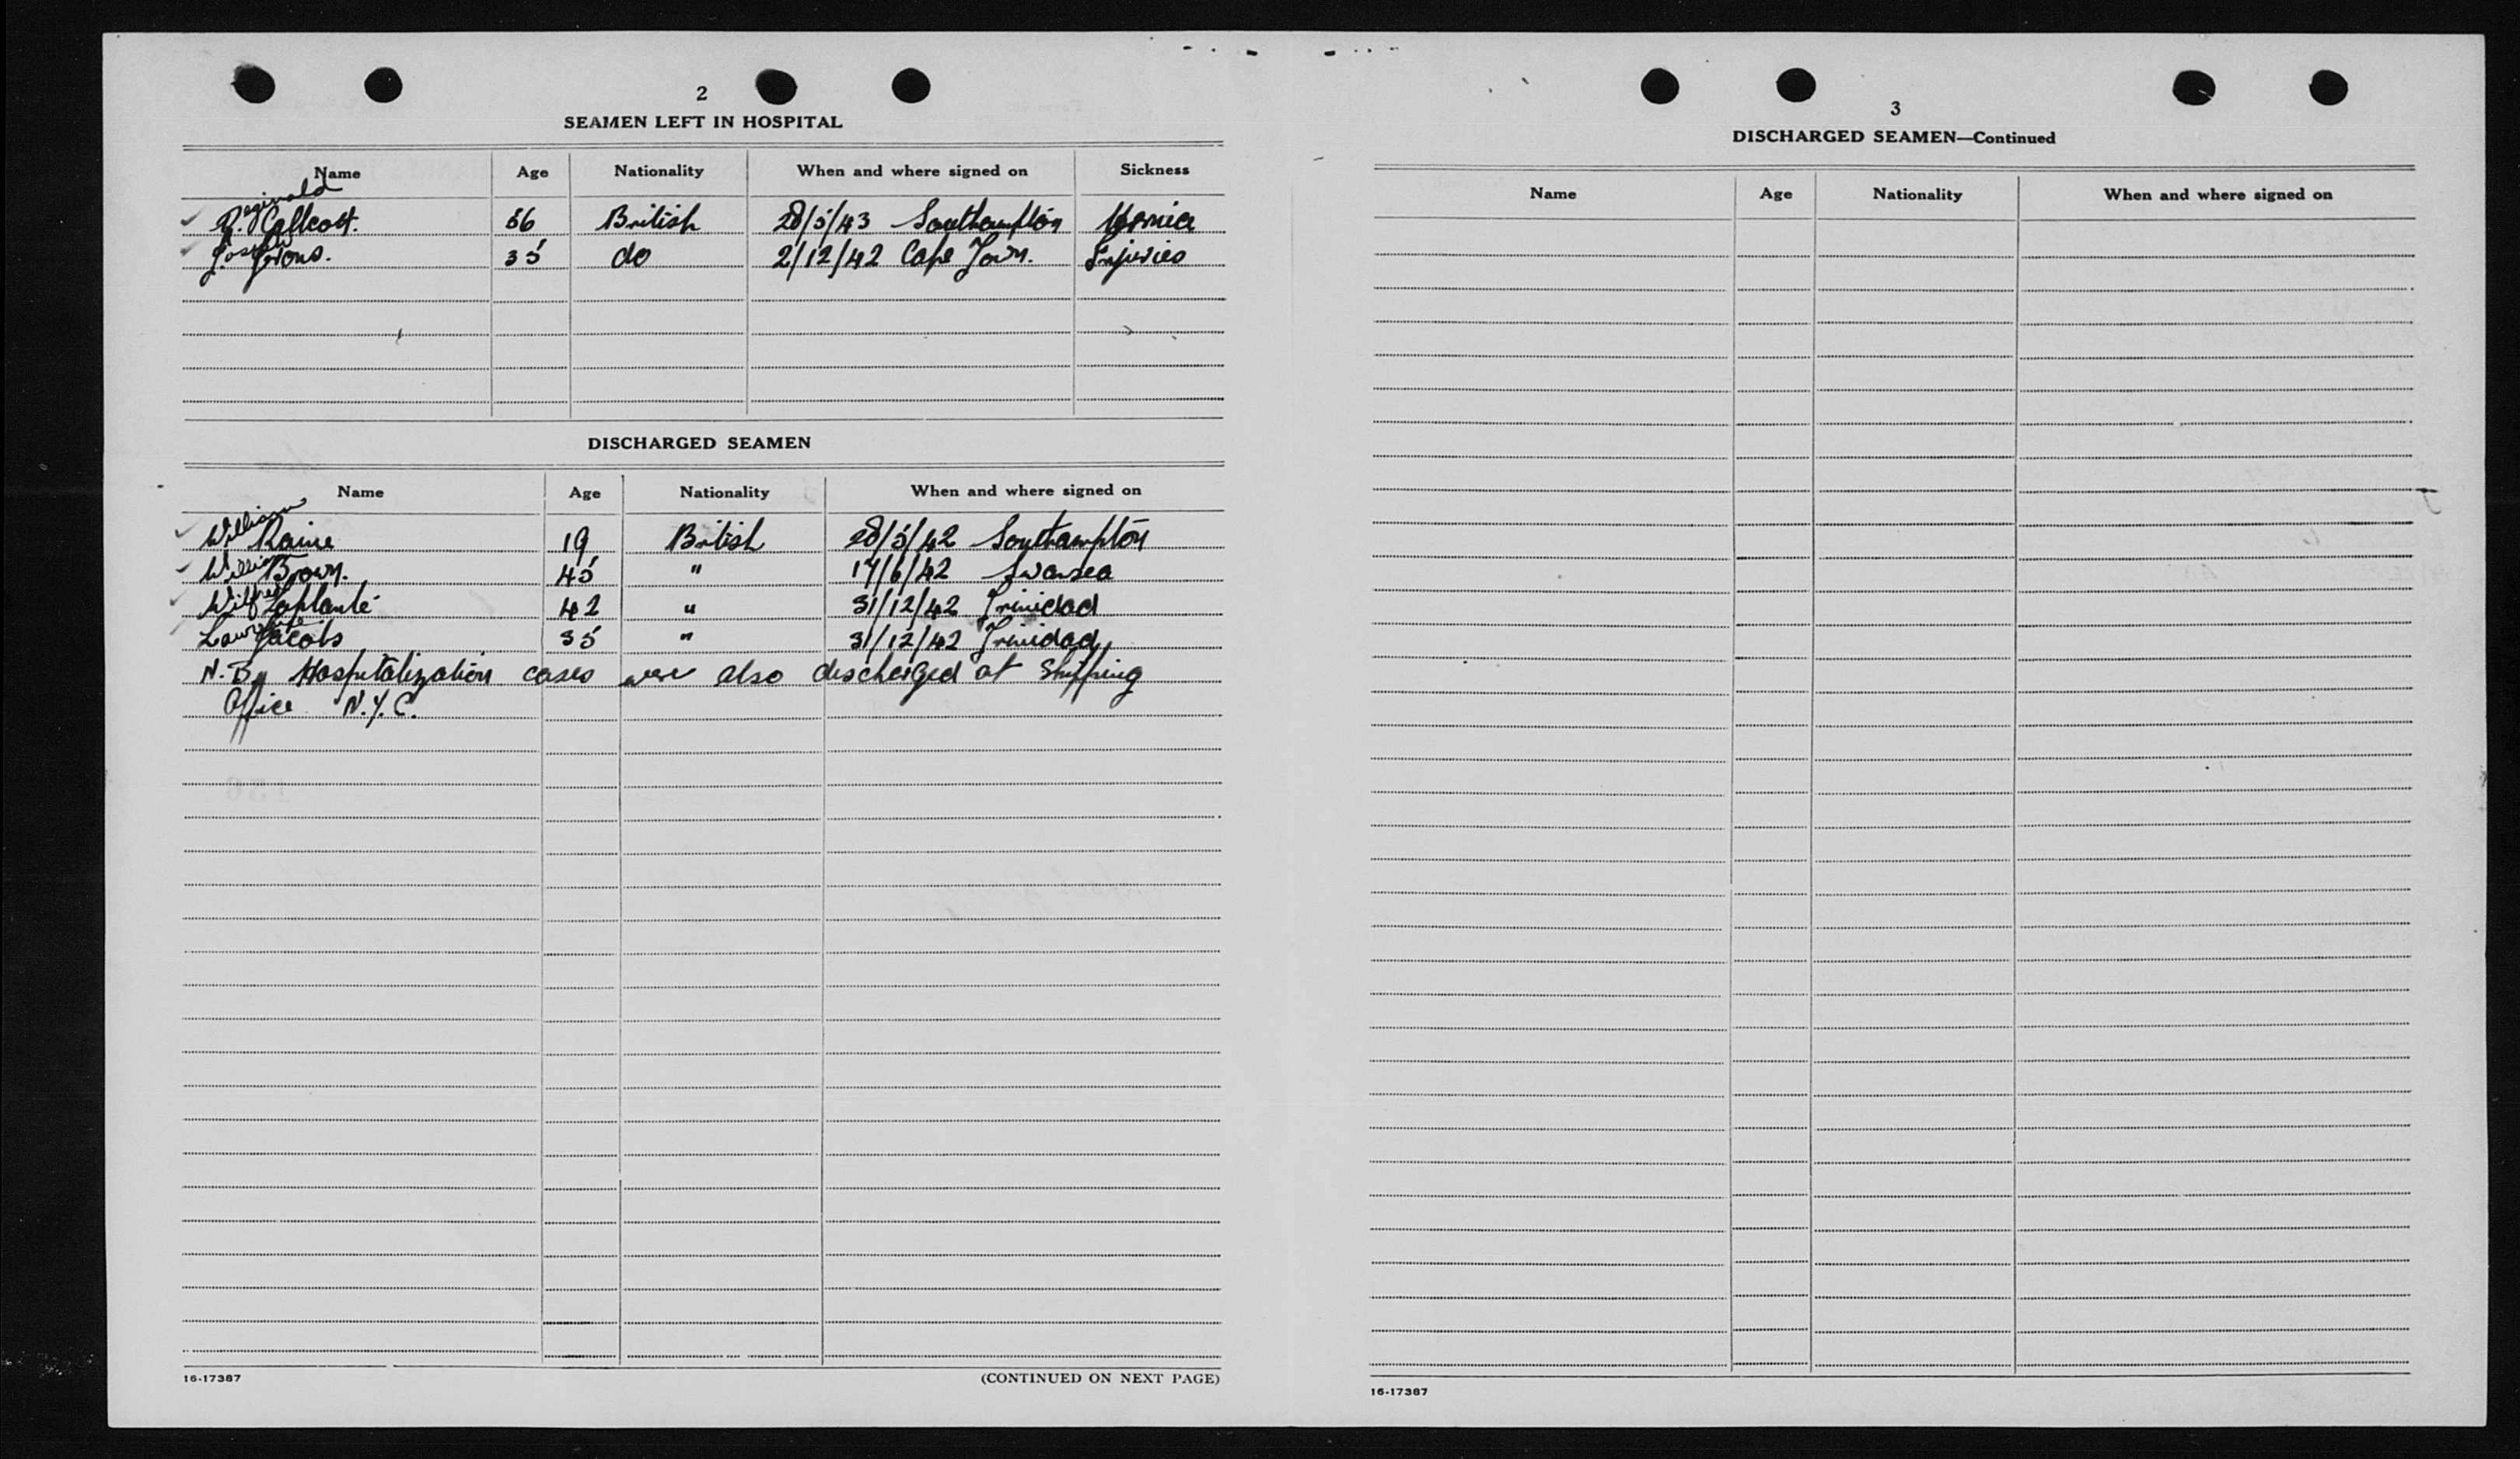 2
SEAMEN LEFT IN HOSPITAL
Name Age Nationality When and where signed on Sickness
Reginald
R. Callcott. 56 British 28/5/43 Southampton Hernia
Joseph
J. 35 do 2/12/42 Cape Town. Injuries
DISCHARGED SEAMEN
Name Age Nationality When and where signed on
William Raine 19 British 28/5/42 Southampton
William Brown. 45 " 17/6/42 Swansea
Wilfred Laplante 42 " 31/12/42 Trinidad
Lawrence Jacobs 35 " 31/12/42 Trinidad
N.B. Hospitalization cases were also discharged at Shipping
Office N.Y.C.
16-17387 (CONTINUED ON NEXT PAGE)
3
DISCHARGED SEAMEN—Continued
Name Age Nationality When and where signed on
16-17387